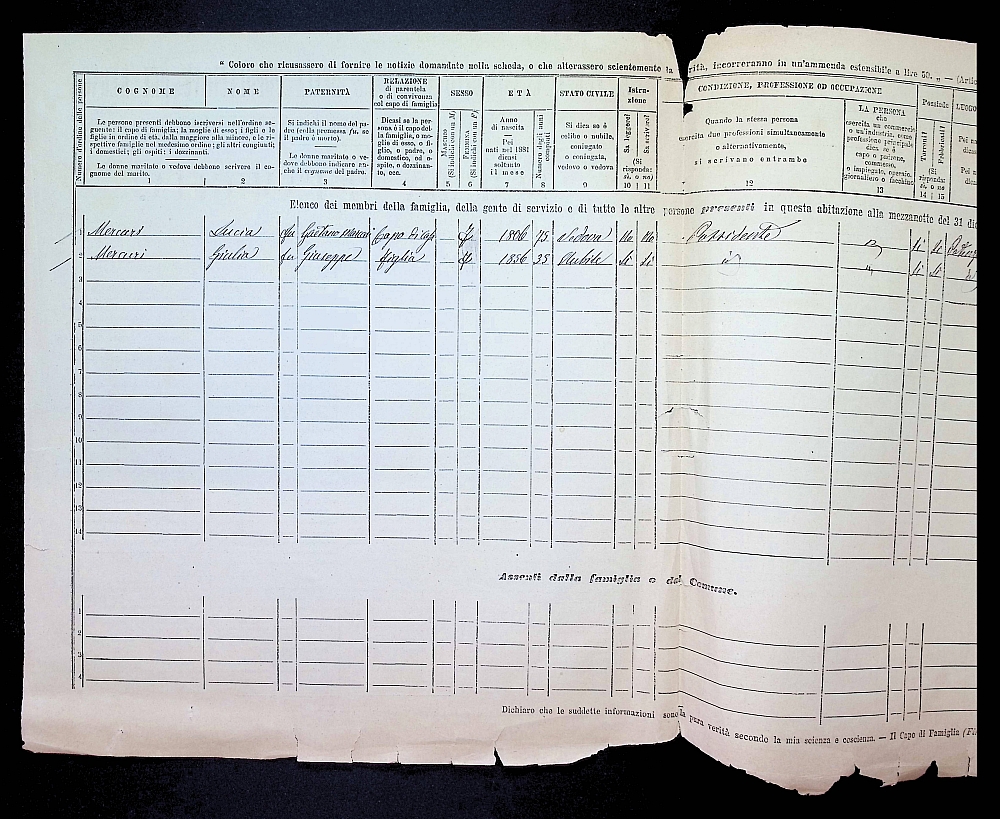 " Coloro che ricusassero di fornire le notizie domandate nella scheda, o che alterassero scientemente la rità, incorreranno in un'ammenda estensibile a lire 50. „ — (Artic
Numero d'ordine delle persone
COGNOME
NOME
Le persone presenti debbono iscriversi nell'ordine se-
guente: il capo di famiglia; la moglie di esso; i figli e le
figlie in ordine di età, dalla maggiore alla minore, e le ri-
spettive famiglie nel medesimo ordine; gli altri congiunti;
i domestici; gli ospiti; i dozzinanti.
Le donne maritate o vedove debbono scrivere il co-
gnome del marito.
1 2
PATERNITÀ
Si indichi il nome del pa-
dre (colla premessa fu, se
il padre è morto).
Le donne maritate o ve-
dove debbono indicare an-
che il cognome del padre.
3
RELAZIONE
di parentela
o di convivenza
col capo di famiglia
Dicasi se la per-
sona è il capo del-
la famiglia, o mo-
glie di esso, o fi-
glio, o padre, o
domestico, od o-
spite, o dozzinan-
te, ecc.
4
SESSO
MASCHIO
(Si indichi con un M)
5
FEMMINA
(Si indichi con un F)
6
ETÀ
Anno
di nascita
—
Pei
nati nel 1881
dicasi
soltanto
il mese
7
Numero degli anni
compiuti
8
STATO CIVILE
Si dica se è
celibe o nubile,
coniugato
o coniugata,
vedovo o vedova
9
Istru-
zione
Sa leggere?
Sa scrivere?
(Si
risponda:
sì, o no)
10 11
CONDIZIONE, PROFESSIONE OD OCCUPAZIONE
Quando la stessa persona
esercita due professioni simultaneamente
o alternativamente,
si scrivano entrambe
12
LA PERSONA
che
esercita un commercio
o un'industria, come
professione principale
dica se è
capo o padrone,
commesso,
o impiegato, operaio,
giornaliero o facchino
13
Possiede
Terreni?
Fabbricati?
(Si
risponda:
sì, o no
14 15
LUOGO
Pei n
dica
Pei n
dica
Elenco dei membri della famiglia, della gente di servizio e di tutte le altre persone presenti in questa abitazione alla mezzanotte del 31 dic
1 Mercuri Lucia fu Gaetano Mercuri Capo di casa — F 1806 75 Vedova No No Possidente Si Si
2 Mercuri Giulia fu Giuseppe figlia — F 1856 35 Nubile Si Si id Si Si
3
4
5
6
7
8
9
10
11
12
13
14
Assenti dalla famiglia o dal Comune.
1
2
3
4
Dichiaro che le suddette informazioni sono la pura verità secondo la mia scienza e coscienza. — Il Capo di Famiglia (Fi